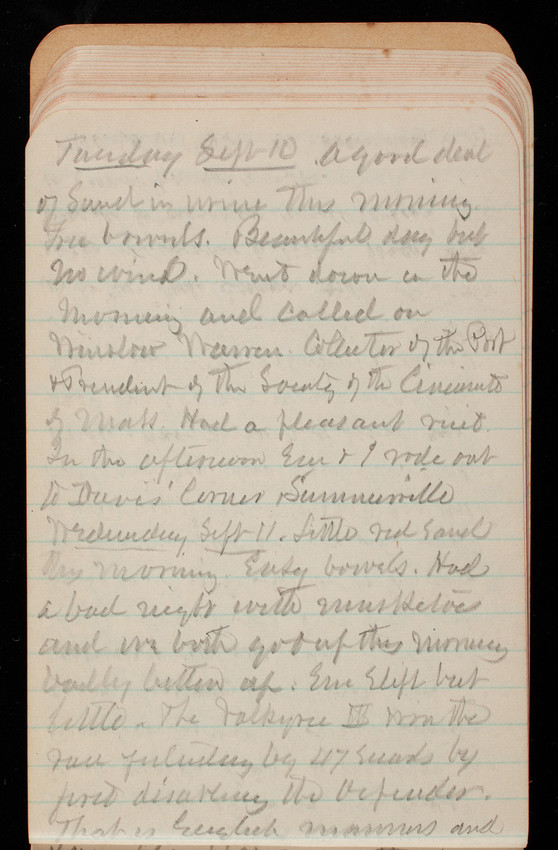 Tuesday Sept 10 A good deal
of Sand in urine this morning.
Free bowels. Beautiful day but
no wind. Went down in the
morning and called on
Winslow Warren Collector of the Port
& President of the Society of the Cincinnati
of Mass. Had a pleasant visit.
In the afternoon Em & I rode out
to Davis' Corner Summerville
Wednesday Sept 11. Little red sand
this morning. Easy bowels. Had
a bad night with musketoes
and we both got up this morning
badly bitten up. Em Slept but
little. The Valkyrie III won the
race yesterday by 47 seconds by
first disabling the Defender.
That is English manners and